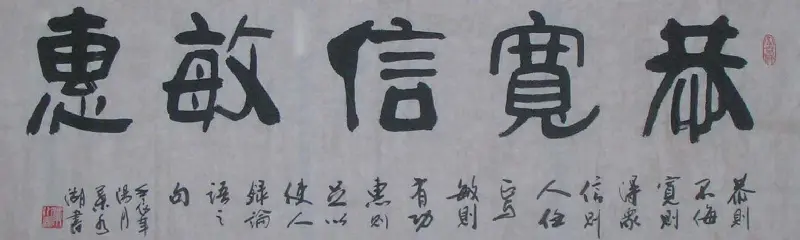 恭寬信敏惠
恭則
不侮
寬則
得眾
信則
人任
焉
敏則
有功
惠則
足以
使人
錄論
語之
句
陽月
湖書